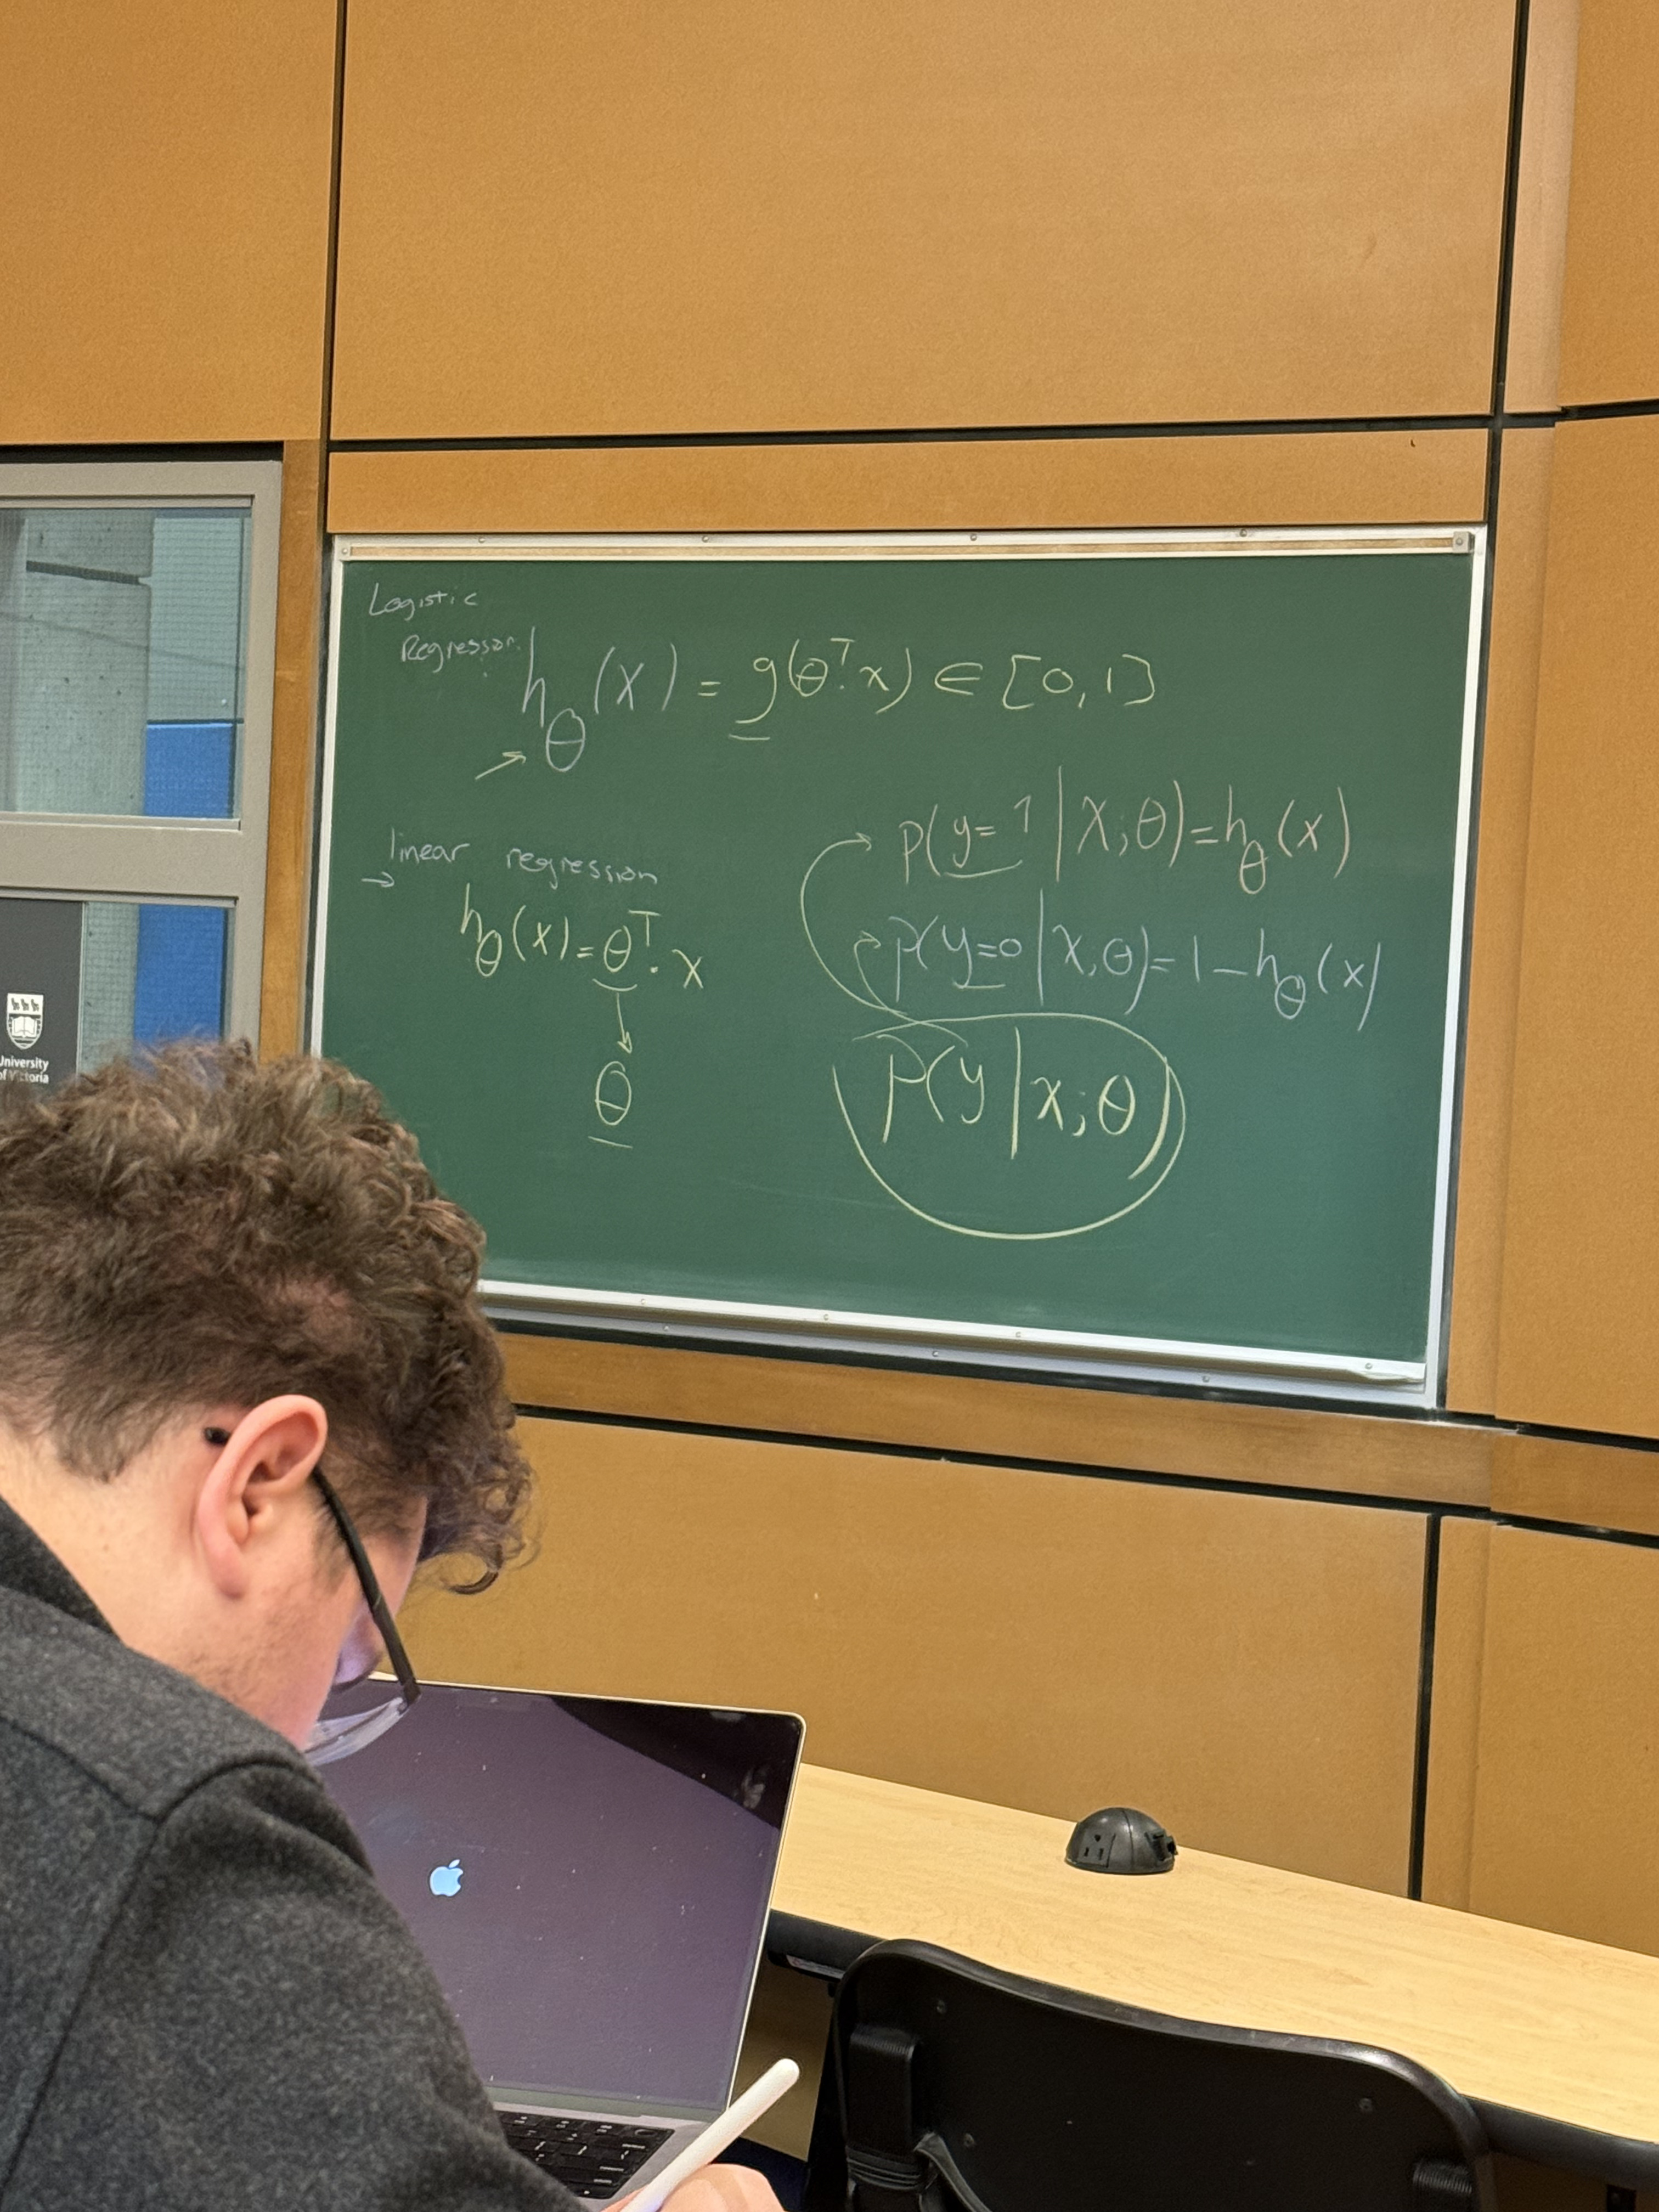 Logistic
Regression
h_θ(x) = g(θᵀ·x) ∈ [0,1]
linear regression
h_θ(x) = θᵀ·x
θ
P(y=1|X;θ)=h_θ(x)
P(y=0|x,θ)=1-h_θ(x)
P(y|x;θ)
University
of Victoria